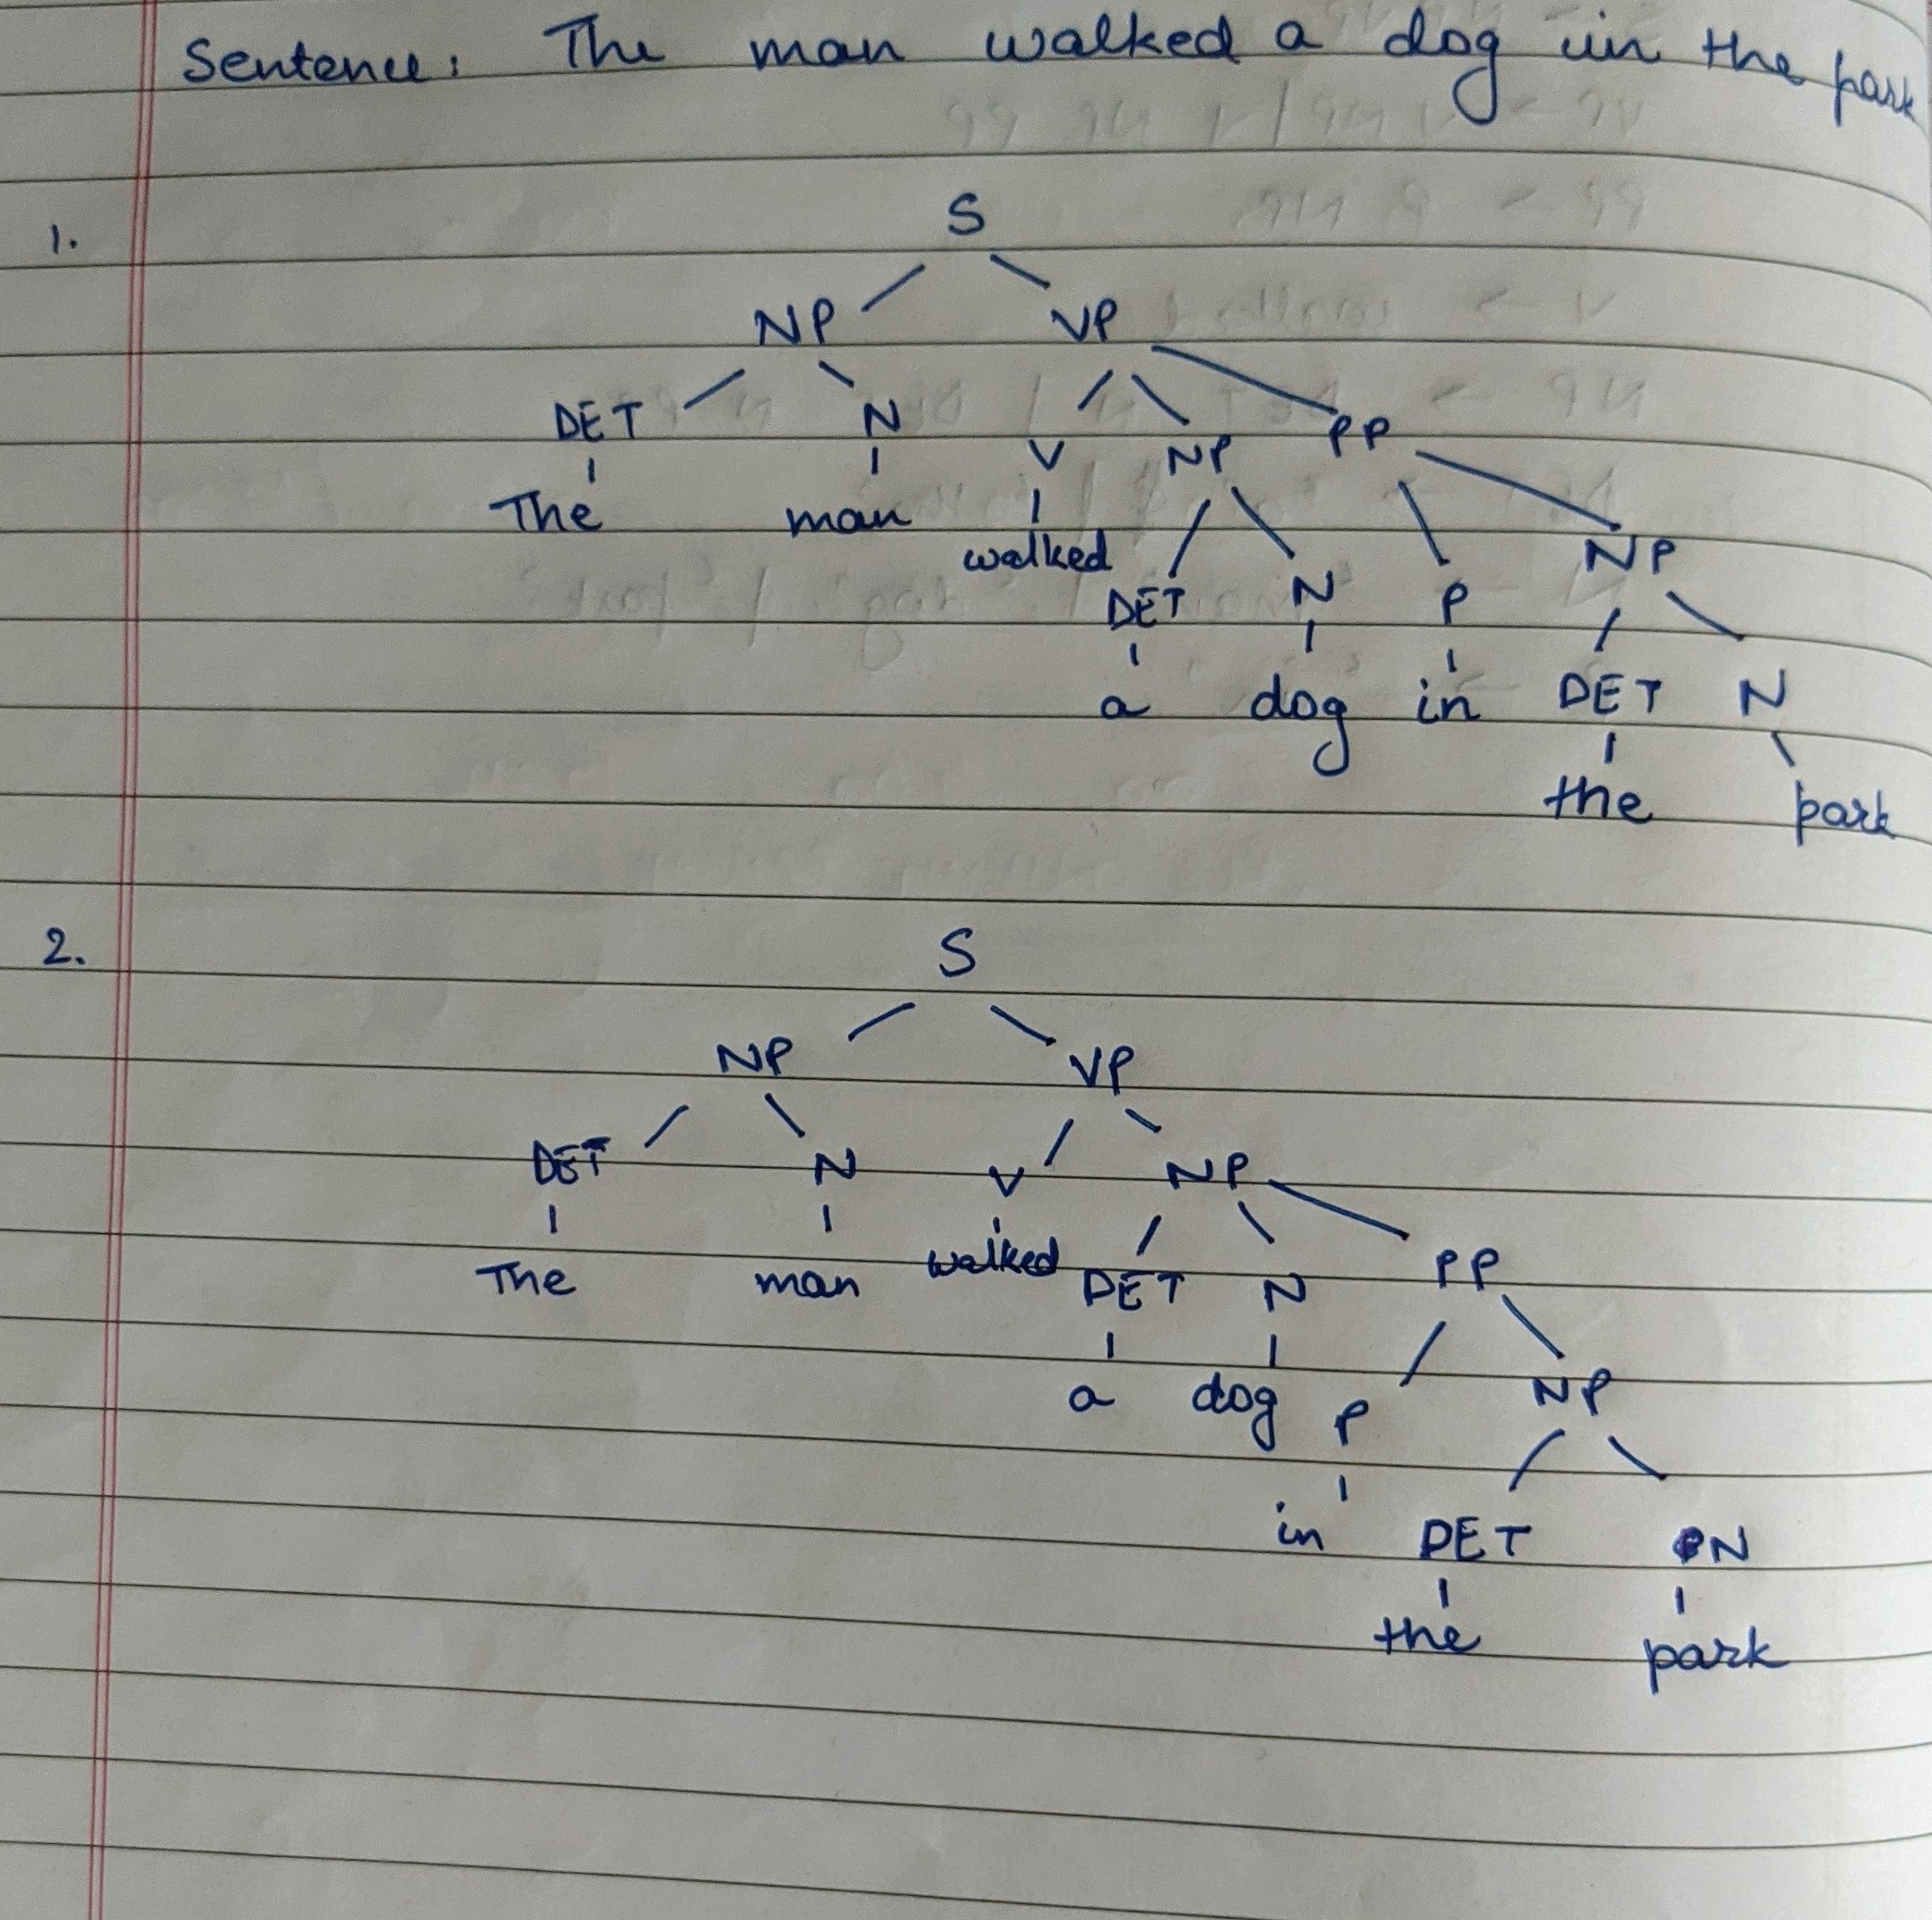 Sentence: The man walked a dog in the park
1.
S
NP VP
DET N V NP PP
The man walked DET N P NP
a dog in DET N
the park
2.
S
NP VP
DET N V NP
The man walked DET N PP
a dog P NP
in DET N
the park